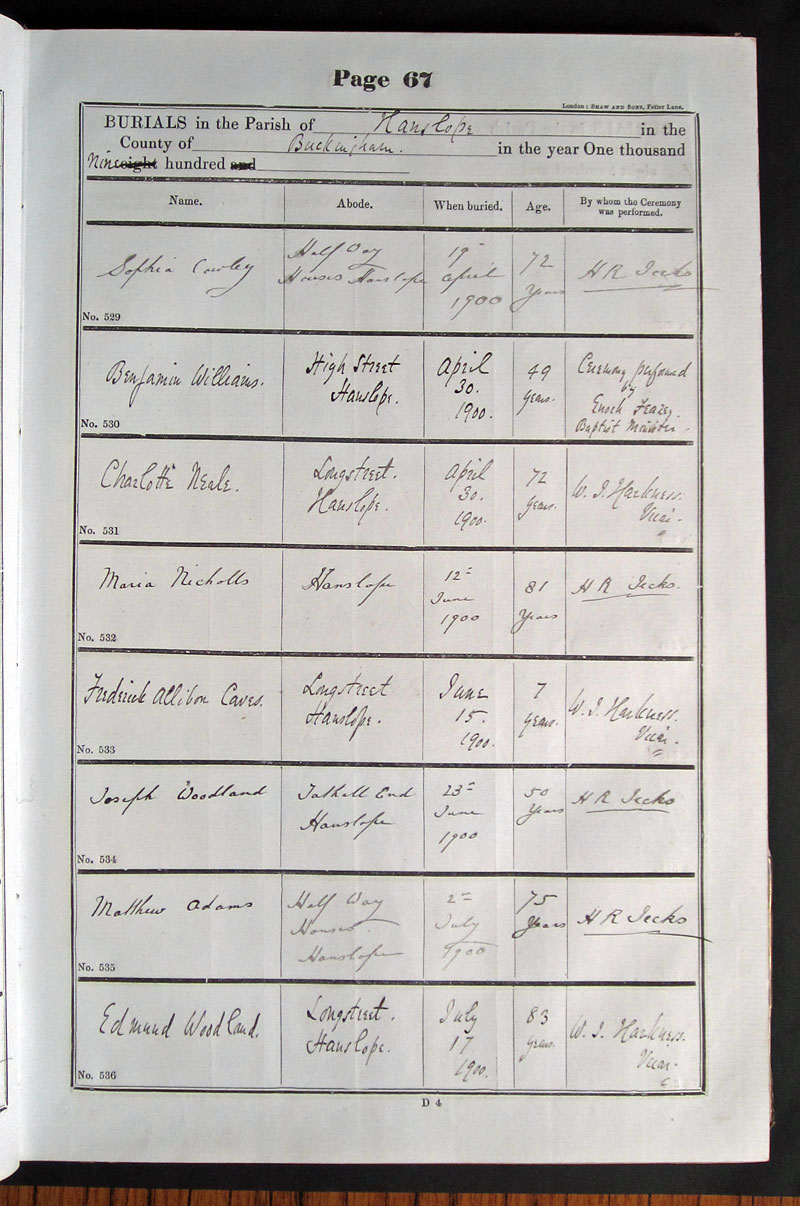 Page 67
London : SHAW AND SONS, Fetter Lane.
BURIALS in the Parish of Hanslope in the
County of Buckingham. in the year One thousand
Nine eight hundred and
Name. Abode. When buried. Age. By whom the Ceremony was performed.
Sophia Cowley
Half Way
Houses Hanslope
19th
April
1900
72
Years
H R Jecks
No. 529
Benjamin Williams.
High Street
Hanslope.
April
30.
1900.
49
Years.
Ceremony performed
by
Enoch
Baptist Minister.
No. 530
Charlotte Neale.
Longstreet.
Hanslope.
April
30.
1900.
72
Years.
W. J. Harkness.
Vicar.
No. 531
Maria Nicholls
Hanslope
12th
June
1900
81
Years
H R Jecks.
No. 532
Frederick Allibon Caves.
Longstreet
Hanslope.
June
15.
1900.
7
Years.
W. J. Harkness.
Vicar.
No. 533
Joseph Woodland
Tathall End
Hanslope
23rd
June
1900
50
Years
H R Jecks
No. 534
Matthew Adams
Half Way
Houses.
Hanslope
2nd
July
1900
75
Years
H R Jecks
No. 535
Edmund Woodland.
Longstreet.
Hanslope.
July
17
1900.
83
Years.
W. J. Harkness.
Vicar.
No. 536
D 4